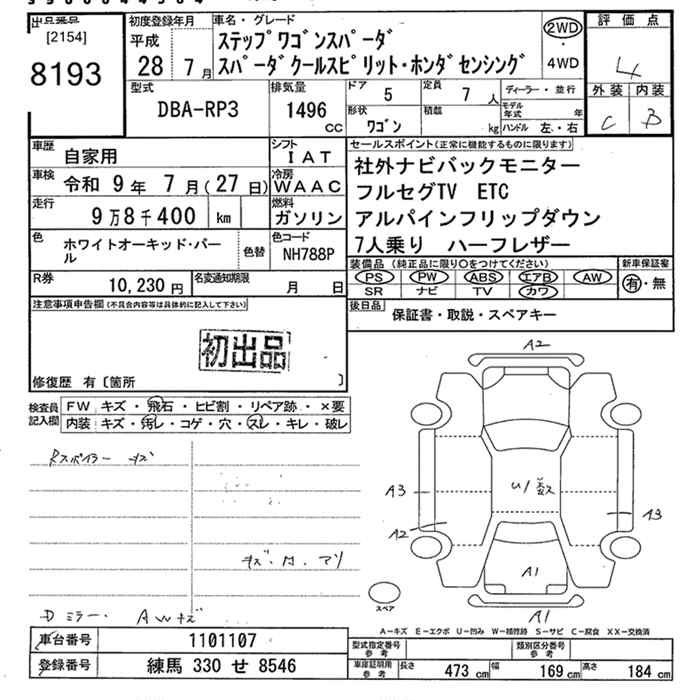 出品番号
[2154]
8193
初度登録年月
平成
28 7月
車名・グレード
ステップワゴンスパーダ
スパーダクールスピリット・ホンダセンシング
2WD
・
4WD
評価点
4
外装 内装
C B
型式
DBA-RP3
排気量
1496
CC
ドア 5
定員 7人
形状
ワゴン
積載
kg
ディーラー・並行
モデル年式 年
ハンドル 左・右
車歴
自家用
シフト
IAT
車検 令和 9年 7月(27日)
冷房
WAAC
走行
9万8千400 km
燃料
ガソリン
色
ホワイトオーキッド・パール
色替
色コード
NH788P
R券
10,230円
名変通知期限
月 日
セールスポイント(正常に機能するものに限ります)
社外ナビバックモニター
フルセグTV ETC
アルパインフリップダウン
7人乗り ハーフレザー
装備品(純正品に限り○をつけてください)
PS PW ABS エアB AW
SR ナビ TV カワ
新車保証書
有・無
後日品
保証書・取説・スペアキー
注意事項申告欄(不具合内容等は具体的に記入して下さい)
初出品
修復歴 有〔箇所 〕
検査員記入欄
FW キズ・飛石・ヒビ割・リペア跡・×要
内装 キズ・汚レ・コゲ・穴・スレ・キレ・破レ
Rスポイラー キズ
Dミラー・AWキズ
A2
A3
A2
A3
A1
A1
スペア
A-キズ E-エクボ U-凹み W-補修跡 S-サビ C-腐食 XX-交換済
車台番号 1101107
登録番号 練馬 330 せ 8546
型式指定番号
参考
類別区分番号
参考
車庫証明用
参考
長さ 473cm 幅 169cm 高さ 184cm